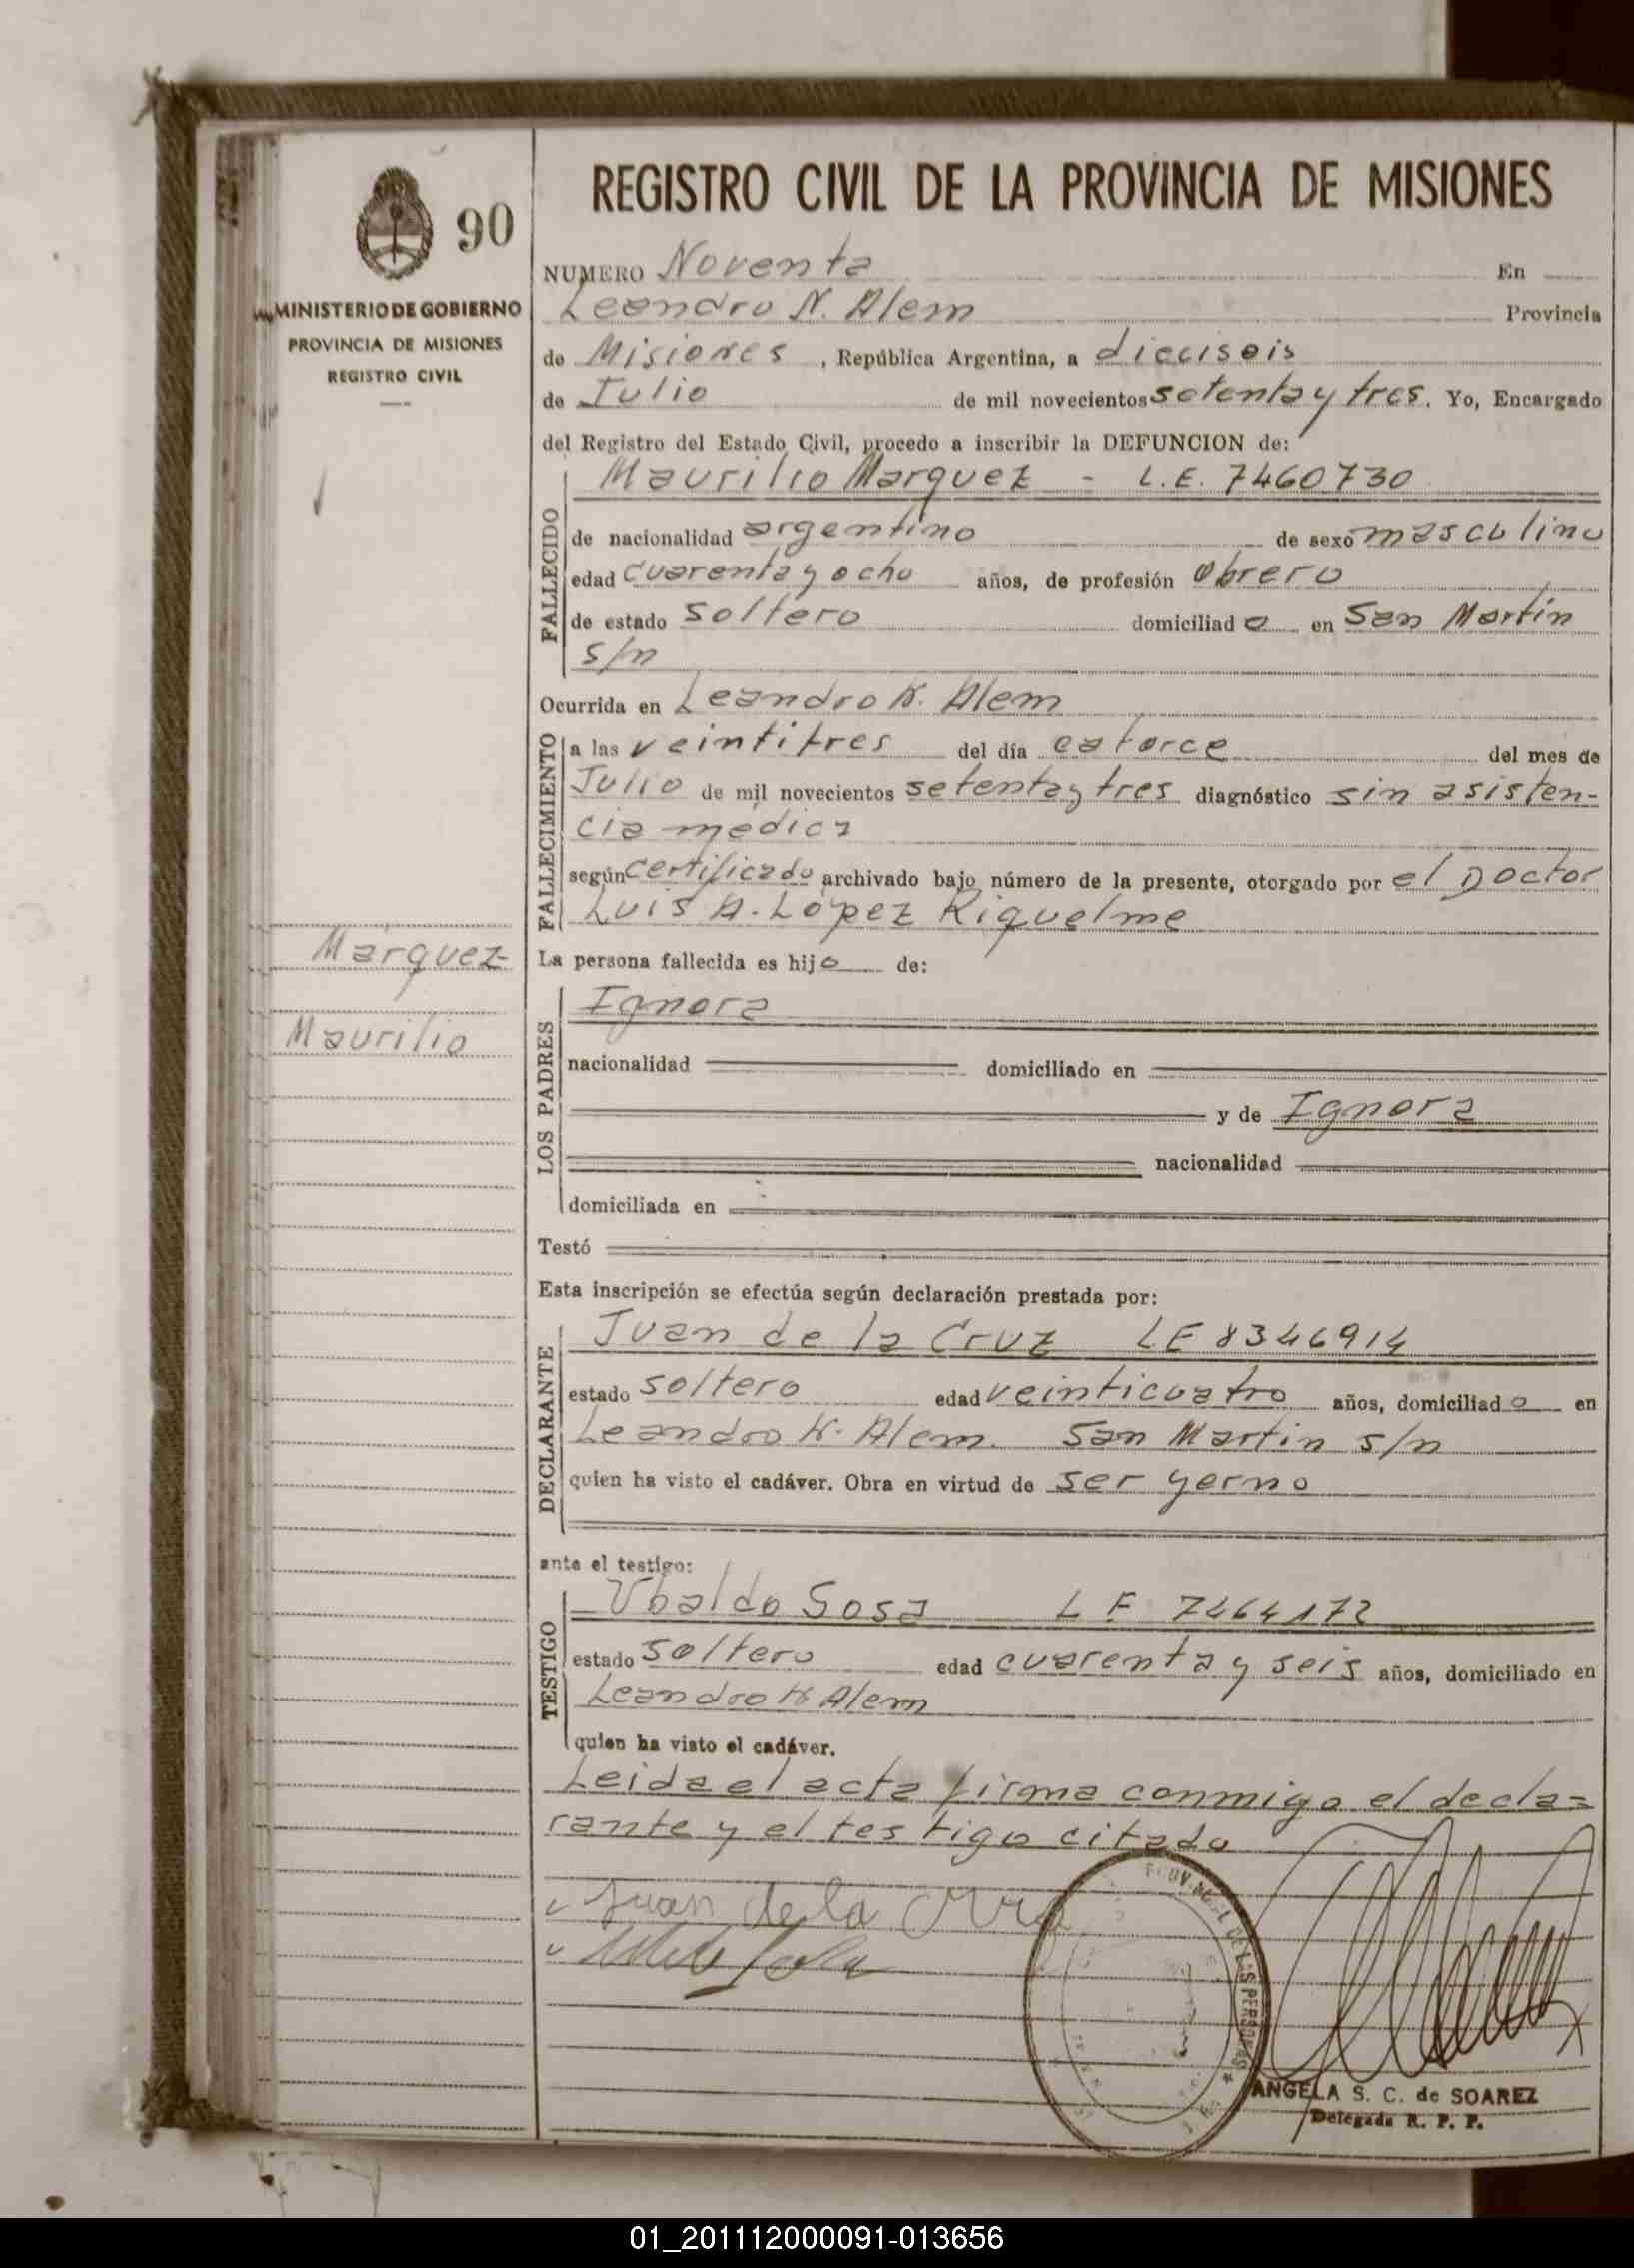 REGISTRO CIVIL DE LA PROVINCIA DE MISIONES
90
MINISTERIO DE GOBIERNO
PROVINCIA DE MISIONES
REGISTRO CIVIL
NUMERO Noventa En
Leandro N. Alem Provincia
de Misiones, República Argentina, a dieciseis
de Julio de mil novecientos setenta y tres. Yo, Encargado
del Registro del Estado Civil, procedo a inscribir la DEFUNCION de:
FALLECIDO
Maurilio Marquez - L.E. 7460730
de nacionalidad argentino de sexo masculino
edad cuarenta y ocho años, de profesión Obrero
de estado soltero domiciliado en San Martín
s/n
Ocurrida en Leandro N. Alem
FALLECIMIENTO
a las veintitres del día catorce del mes de
Julio de mil novecientos setenta y tres diagnóstico sin asisten-
cia medica
según certificado archivado bajo número de la presente, otorgado por el Doctor
Luis A. López Riquelme
Marquez
Maurilio
La persona fallecida es hijo de:
LOS PADRES
Ignora
nacionalidad domiciliado en
y de Ignora
nacionalidad
domiciliada en
Testó
Esta inscripción se efectúa según declaración prestada por:
DECLARANTE
Juan de la Cruz LE 8346914
estado soltero edad veinticuatro años, domiciliado en
Leandro N. Alem. San Martin s/n
quien ha visto el cadáver. Obra en virtud de ser yerno
ante el testigo:
TESTIGO
Ubaldo Sosa L E 7464172
estado soltero edad cuarenta y seis años, domiciliado en
Leandro N Alem
quien ha visto el cadáver.
Leida el acta firma conmigo el decla=
rante y el testigo citado
Juan de la Cruz
ANGELA S. C. de SOAREZ
Delegada R. P. P.
01_201112000091-013656